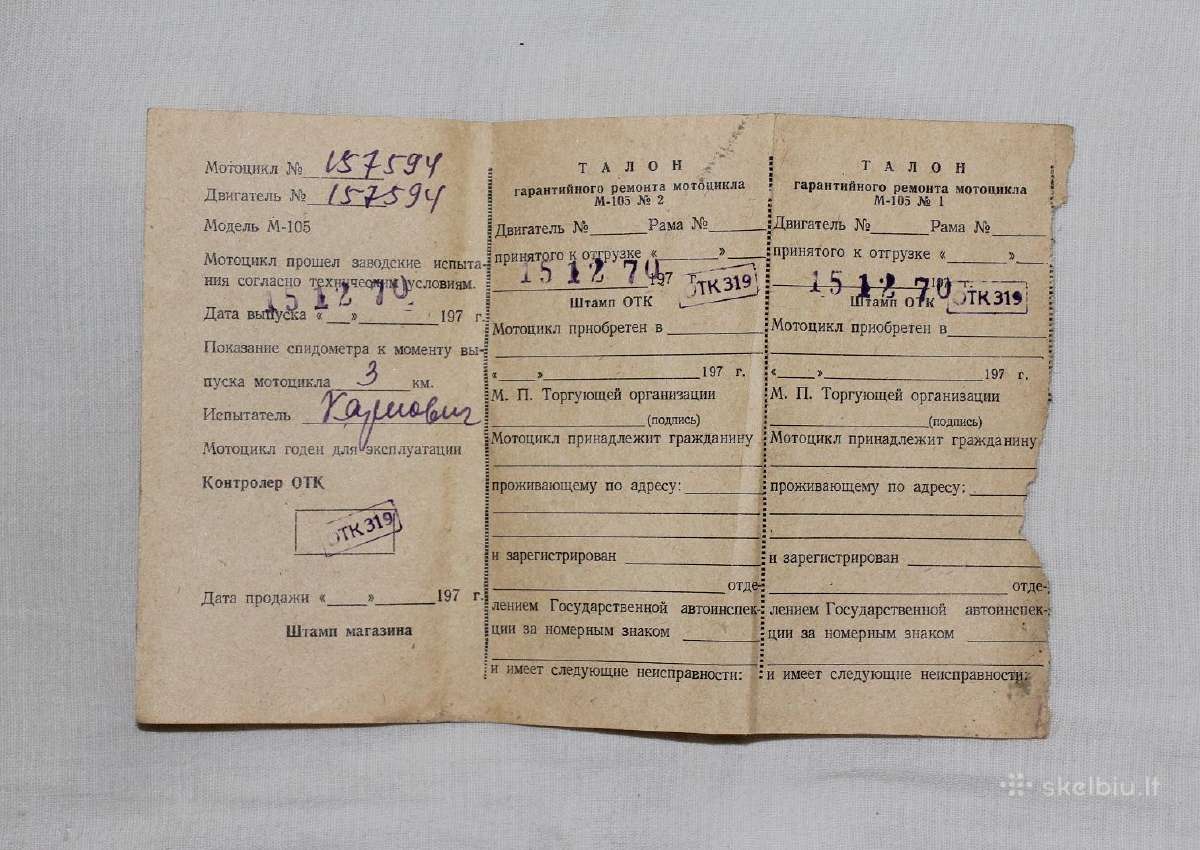 Мотоцикл № 157594
Двигатель № 157594
Модель М-105
Мотоцикл прошел заводские испыта-
ния согласно техническим условиям.
15 12 70
Дата выпуска «__»________197 г.
Показание спидометра к моменту вы-
пуска мотоцикла 3 км.
Испытатель
Мотоцикл годен для эксплуатации
Контролер ОТК
ОТК 319
Дата продажи «___»______197 г.
Штамп магазина
ТАЛОН
гарантийного ремонта мотоцикла
М-105 № 2
Двигатель №______Рама №______
принятого к отгрузке «______»
15 12 70 197 г.
ОТК 319
Штамп ОТК
Мотоцикл приобретен в
«____»________________197 г.
М. П. Торгующей организации
(подпись)
Мотоцикл принадлежит гражданину
проживающему по адресу:
и зарегистрирован
отде-
лением Государственной автоинспек-
ции за номерным знаком
и имеет следующие неисправности:
ТАЛОН
гарантийного ремонта мотоцикла
М-105 № 1
Двигатель №______Рама №______
принятого к отгрузке «______»
15 12 70
ОТК 319
Штамп ОТК
Мотоцикл приобретен в
«____»________________197 г.
М. П. Торгующей организации
(подпись)
Мотоцикл принадлежит гражданину
проживающему по адресу:
и зарегистрирован
отде-
лением Государственной автоинспек-
ции за номерным знаком
и имеет следующие неисправности:
skelbiu.lt